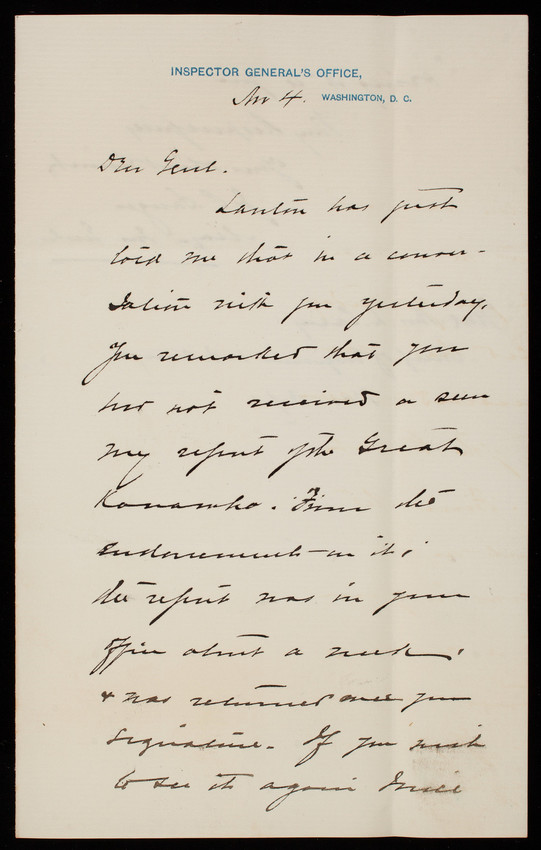 INSPECTOR GENERAL'S OFFICE,
WASHINGTON, D. C.
4.
Dear Genl.
Lawton has just
told me that in a conver-
sation with you yesterday,
you remarked that you
had not received or seen
my report of the Great
Kanawha. From the
endorsements on it,
the report was in your
office about a week,
& was returned over your
signature. If you wish
to see it again I will